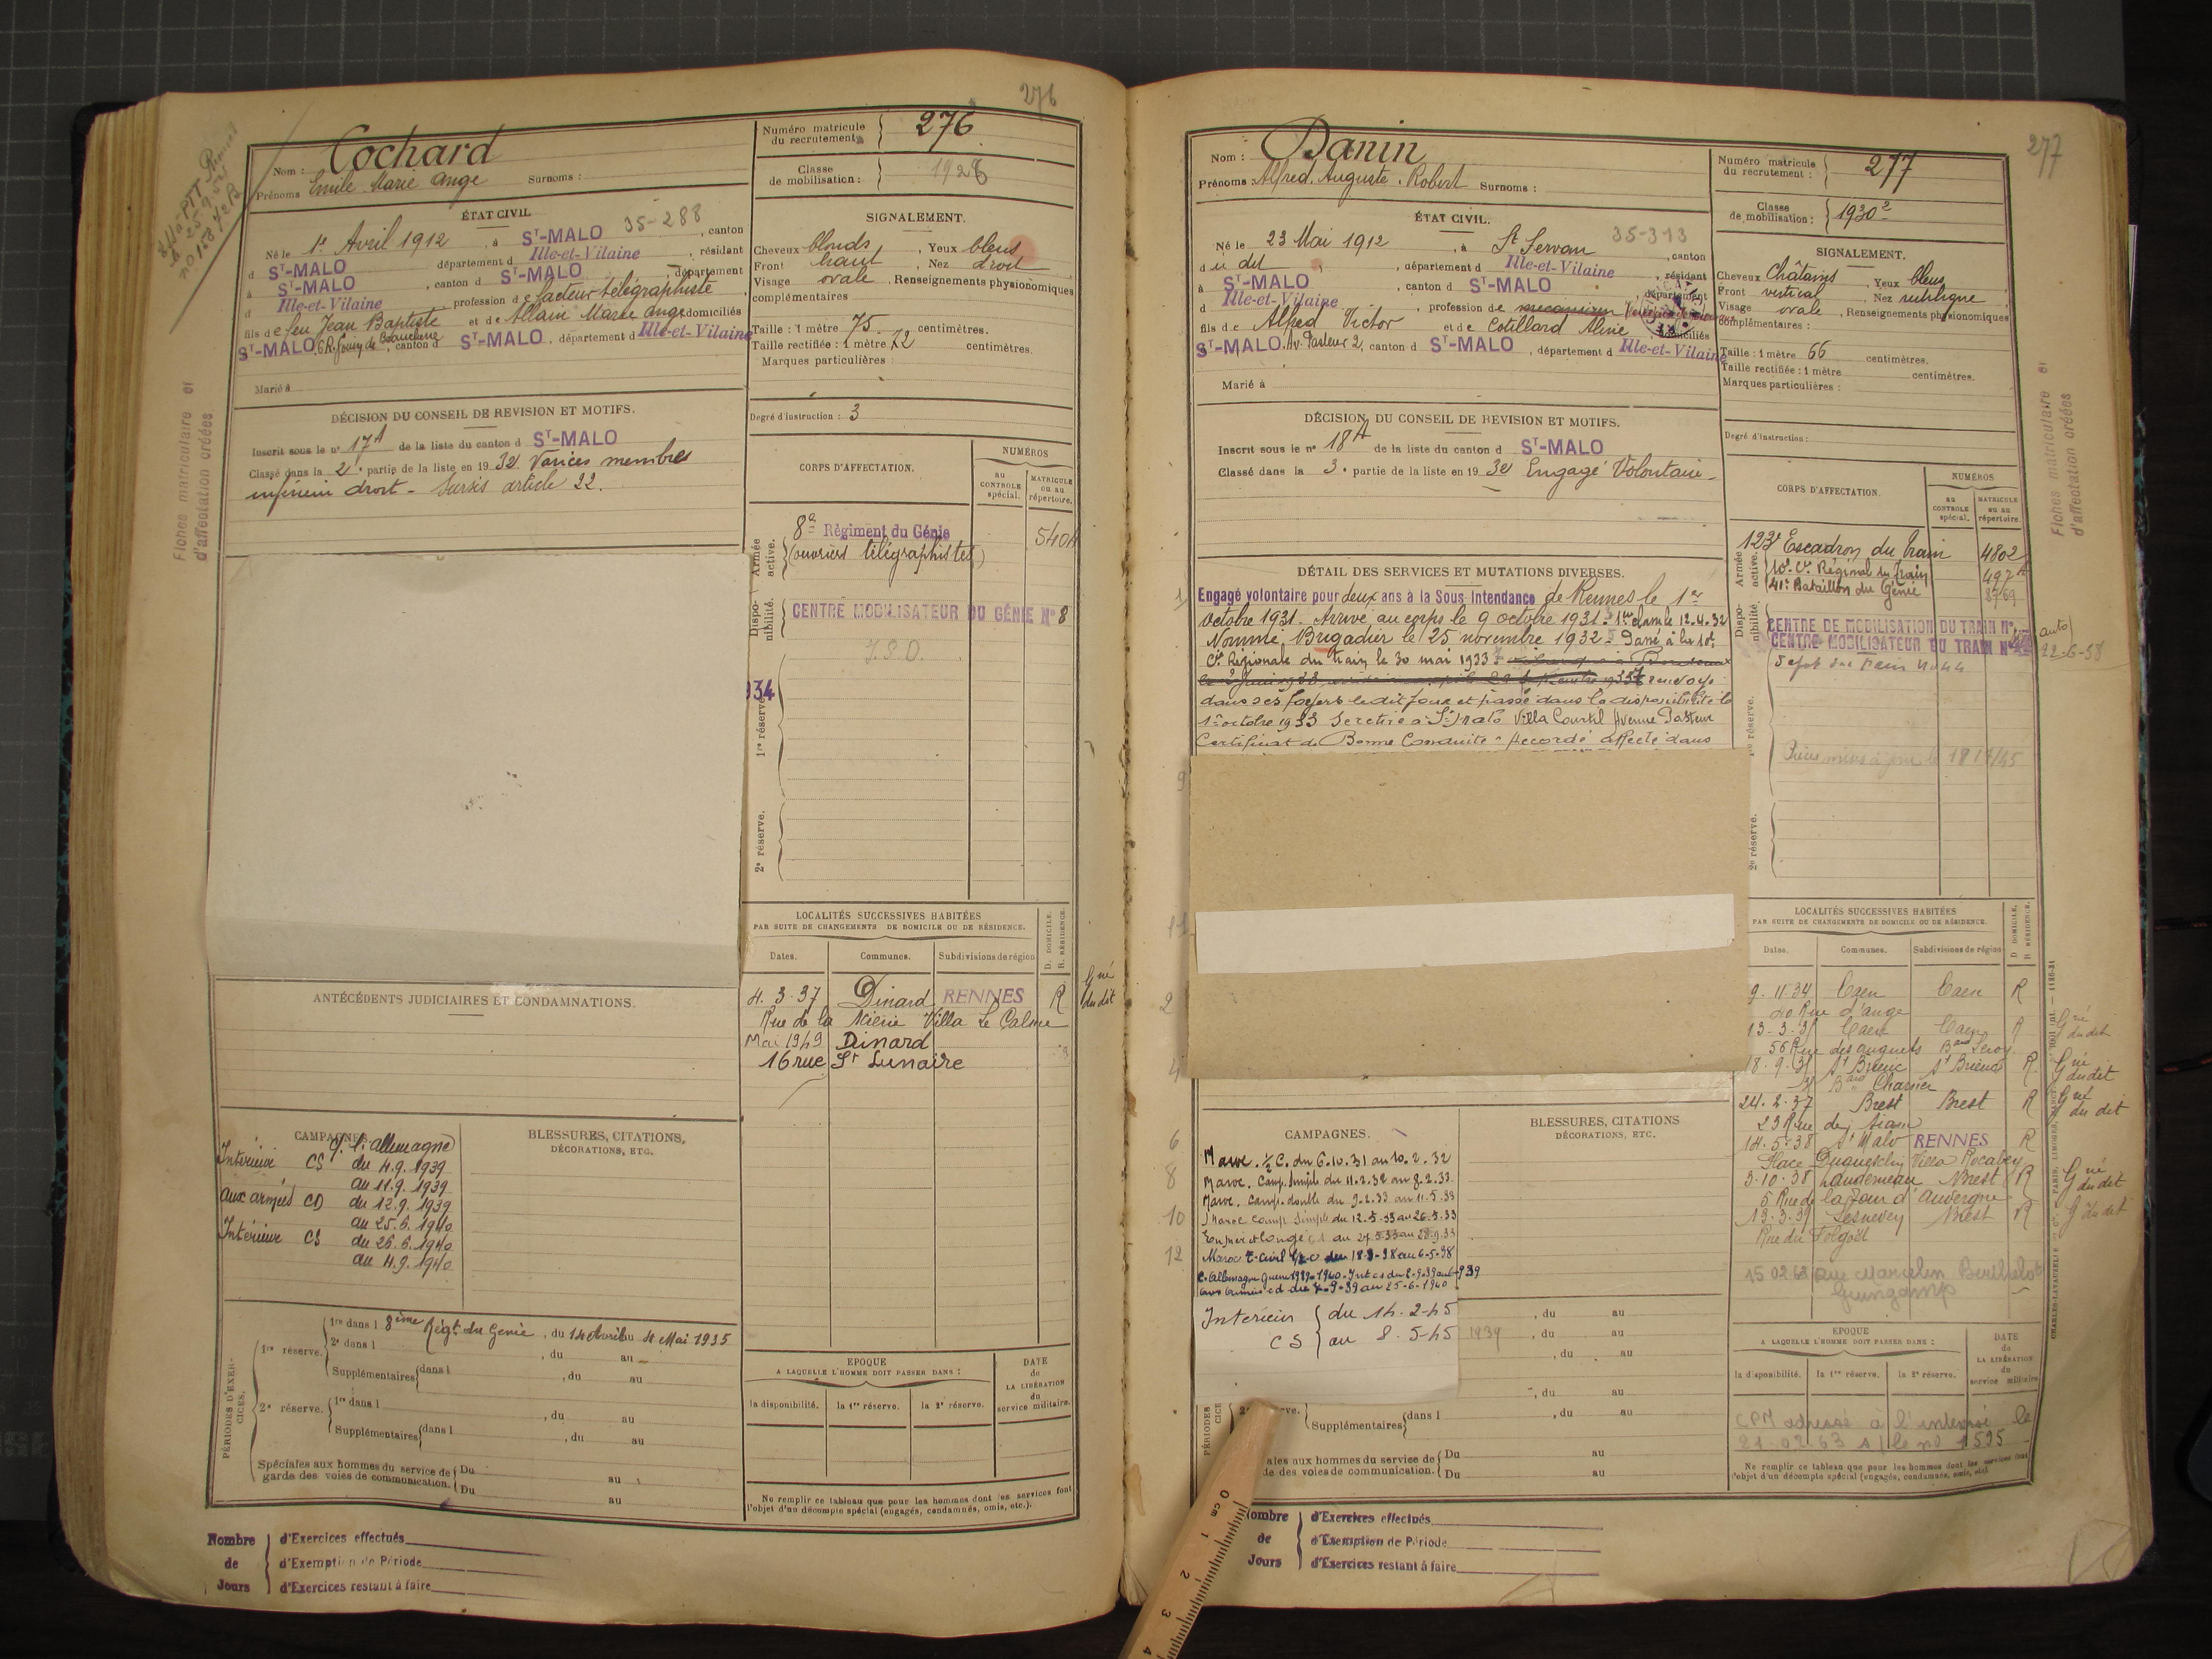 276
Nom : Cochard
Prénoms Emile Marie Ange Surnoms :
Numéro matricule du recrutement 276
Classe de mobilisation : 1928
ÉTAT CIVIL
35-288
Né le 1er Avril 1912, à ST-MALO, canton
d ST-MALO département d Ille-et-Vilaine, résidant
à ST-MALO, canton d ST-MALO, département
d Ille-et-Vilaine, profession de facteur télégraphiste
fils de feu Jean Baptiste et de Allain Marie Ange domiciliés
ST-MALO, canton d ST-MALO, département d Ille-et-Vilaine
Marié à
SIGNALEMENT.
Cheveux blonds, Yeux bleus
Front haut, Nez droit
Visage ovale, Renseignements physionomiques
complémentaires
Taille : 1 mètre 75 centimètres.
Taille rectifiée : 1 mètre 72 centimètres.
Marques particulières :
Degré d'instruction : 3
DÉCISION DU CONSEIL DE REVISION ET MOTIFS.
Inscrit sous le n° 17A de la liste du canton d ST-MALO
Classé dans la 2e partie de la liste en 1932 Varices membre
inférieur droit - Sursis article 22.
CORPS D'AFFECTATION.
NUMÉROS
au CONTROLE spécial.
MATRICULE ou au répertoire.
Armée active.
8e Régiment du Génie
(ouvriers télégraphistes)
Disponibilité.
CENTRE MOBILISATEUR DU GÉNIE N° 8
934
1re réserve.
2e réserve.
Fiches matriculaire et
d'affectation créées
LOCALITÉS SUCCESSIVES HABITÉES
PAR SUITE DE CHANGEMENTS DE DOMICILE OU DE RÉSIDENCE.
Dates. Communes. Subdivisions de région
D. DOMICILE. R. RÉSIDENCE.
4.3.37 Dinard RENNES R Gné du dit
Rue de la Villa Le Calme
Mai 1949 Dinard
16 rue St Lunaire
ANTÉCÉDENTS JUDICIAIRES ET CONDAMNATIONS.
CAMPAGNES.
c. l'Allemagne
Intérieur CS du 4.9.1939
au 11.9.1939
aux armées CD du 12.9.1939
au 25.6.1940
Intérieur CS du 26.6.1940
au 4.9.1940
BLESSURES, CITATIONS,
DÉCORATIONS, ETC.
PÉRIODES D'EXERCICES.
1re réserve.
1re dans l 8ème Régt du Génie, du 14 Avril au 4 Mai 1935
2e dans l, du au
Supplémentaires dans l, du au
2e réserve.
1re dans l, du au
Supplémentaires dans l, du au
Spéciales aux hommes du service de
garde des voies de communication.
Du au
Du au
EPOQUE
A LAQUELLE L'HOMME DOIT PASSER DANS :
la disponibilité. la 1re réserve. la 2e réserve.
DATE de LA LIBÉRATION du service militaire.
Ne remplir ce tableau que pour les hommes dont les services font
l'objet d'un décompte spécial (engagés, condamnés, omis, etc.).
Nombre de Jours
d'Exercices effectués
d'Exemption de Période
d'Exercices restant à faire
277
Nom : Danin
Prénoms : Alfred. Auguste. Robert Surnoms :
Numéro matricule du recrutement : 277
Classe de mobilisation : 1930 2
ÉTAT CIVIL.
35-313
Né le 23 Mai 1912, à St Servan, canton
du dit, département d Ille-et-Vilaine, résidant
à ST-MALO, canton d ST-MALO, département
d Ille-et-Vilaine, profession de mécanicien
fils de Alfred Victor et de Cotillard Aline domiciliés
ST-MALO. Av. Pasteur 2, canton d ST-MALO, département d Ille-et-Vilaine
Marié à
SIGNALEMENT.
Cheveux Châtains, Yeux bleus
Front vertical, Nez rectiligne
Visage ovale, Renseignements physionomiques
complémentaires :
Taille : 1 mètre 66 centimètres.
Taille rectifiée : 1 mètre centimètres.
Marques particulières :
Degré d'instruction :
DÉCISION DU CONSEIL DE REVISION ET MOTIFS.
Inscrit sous le n° 18A de la liste du canton d ST-MALO
Classé dans la 3e partie de la liste en 1932 Engagé Volontaire
DÉTAIL DES SERVICES ET MUTATIONS DIVERSES.
Engagé volontaire pour deux ans à la Sous Intendance de Rennes le 1er
octobre 1931. Arrivé au corps le 9 octobre 1931. 1re classe le 12.4.32
Nommé Brigadier le 25 novembre 1932. Passé à la 10e
Cie Régionale du train le 30 mai 1933
renvoyé
dans ses foyers le dit jour et passé dans la disponibilité le
1er octobre 1933 Se retire à St Malo Villa Courtil Avenue Pasteur
Certificat de Bonne Conduite Accordé affecté dans
CORPS D'AFFECTATION.
NUMÉROS
au CONTROLE spécial.
MATRICULE ou au répertoire.
Armée active.
123e Escadron du Train 4802
10e Cie Régional du Train 497
41e Bataillon du Génie 8769
Disponibilité.
CENTRE DE MOBILISATION DU TRAIN N°
CENTRE MOBILISATEUR DU TRAIN N°
auto
22-6-58
Dépôt du Train N° 44
1re réserve.
2e réserve.
Fiches matriculaire et
d'affectation créées
LOCALITÉS SUCCESSIVES HABITÉES
PAR SUITE DE CHANGEMENTS DE DOMICILE OU DE RÉSIDENCE.
Dates. Communes. Subdivisions de région
D. DOMICILE. R. RÉSIDENCE.
9.11.34 Caen Caen R
40 Rue d'auge
13-3-3 Caen Caen R Gné du dit
56 Rue Leroy
18.9.3 St Brieuc St Brieuc R Gné du dit
24.2.37 Brest Brest R Gné du dit
23 Rue de Siam
14.5.38 St Malo RENNES R
Place Duguesclin Villa Rocabey
3.10.38 Landerneau Brest R Gné du dit
5 Rue de la Tour d'Auvergne
13.3.39 Lesneven Brest R Gné du dit
Rue du Folgoët
15.02.63 Rue Marcelin Berthelot
Guingamp
CAMPAGNES.
Maroc. ½ C. du 6.10.31 au 10.2.32
Maroc. Camp. simple du 11.2.32 au 8.2.33
Maroc. Camp. double du 9.2.33 au 11.5.33
Maroc Camp Simple du 12.5.33 au 26.5.33
C. Allemagne Guerre 1939-1940
aux Armées cd du 7-9-39 au 25-6-1940
Intérieur du 14-2-45
CS au 8-5-45
BLESSURES, CITATIONS
DÉCORATIONS, ETC.
1939
, du au
, du au
, du au
, du au
Supplémentaires dans l, du au
Du au
Du au
EPOQUE
A LAQUELLE L'HOMME DOIT PASSER DANS :
la disponibilité. la 1re réserve. la 2e réserve.
DATE de LA LIBÉRATION du service militaire
CPM adressé à l'intéressé le
21-02-63 s/ le n° 1595
Ne remplir ce tableau que pour les hommes dont les services font
l'objet d'un décompte spécial (engagés, condamnés, omis, etc.)
ombre de Jours
d'Exercices effectués
d'Exemption de Période
d'Exercices restant à faire
0 cm 1 2 3 4